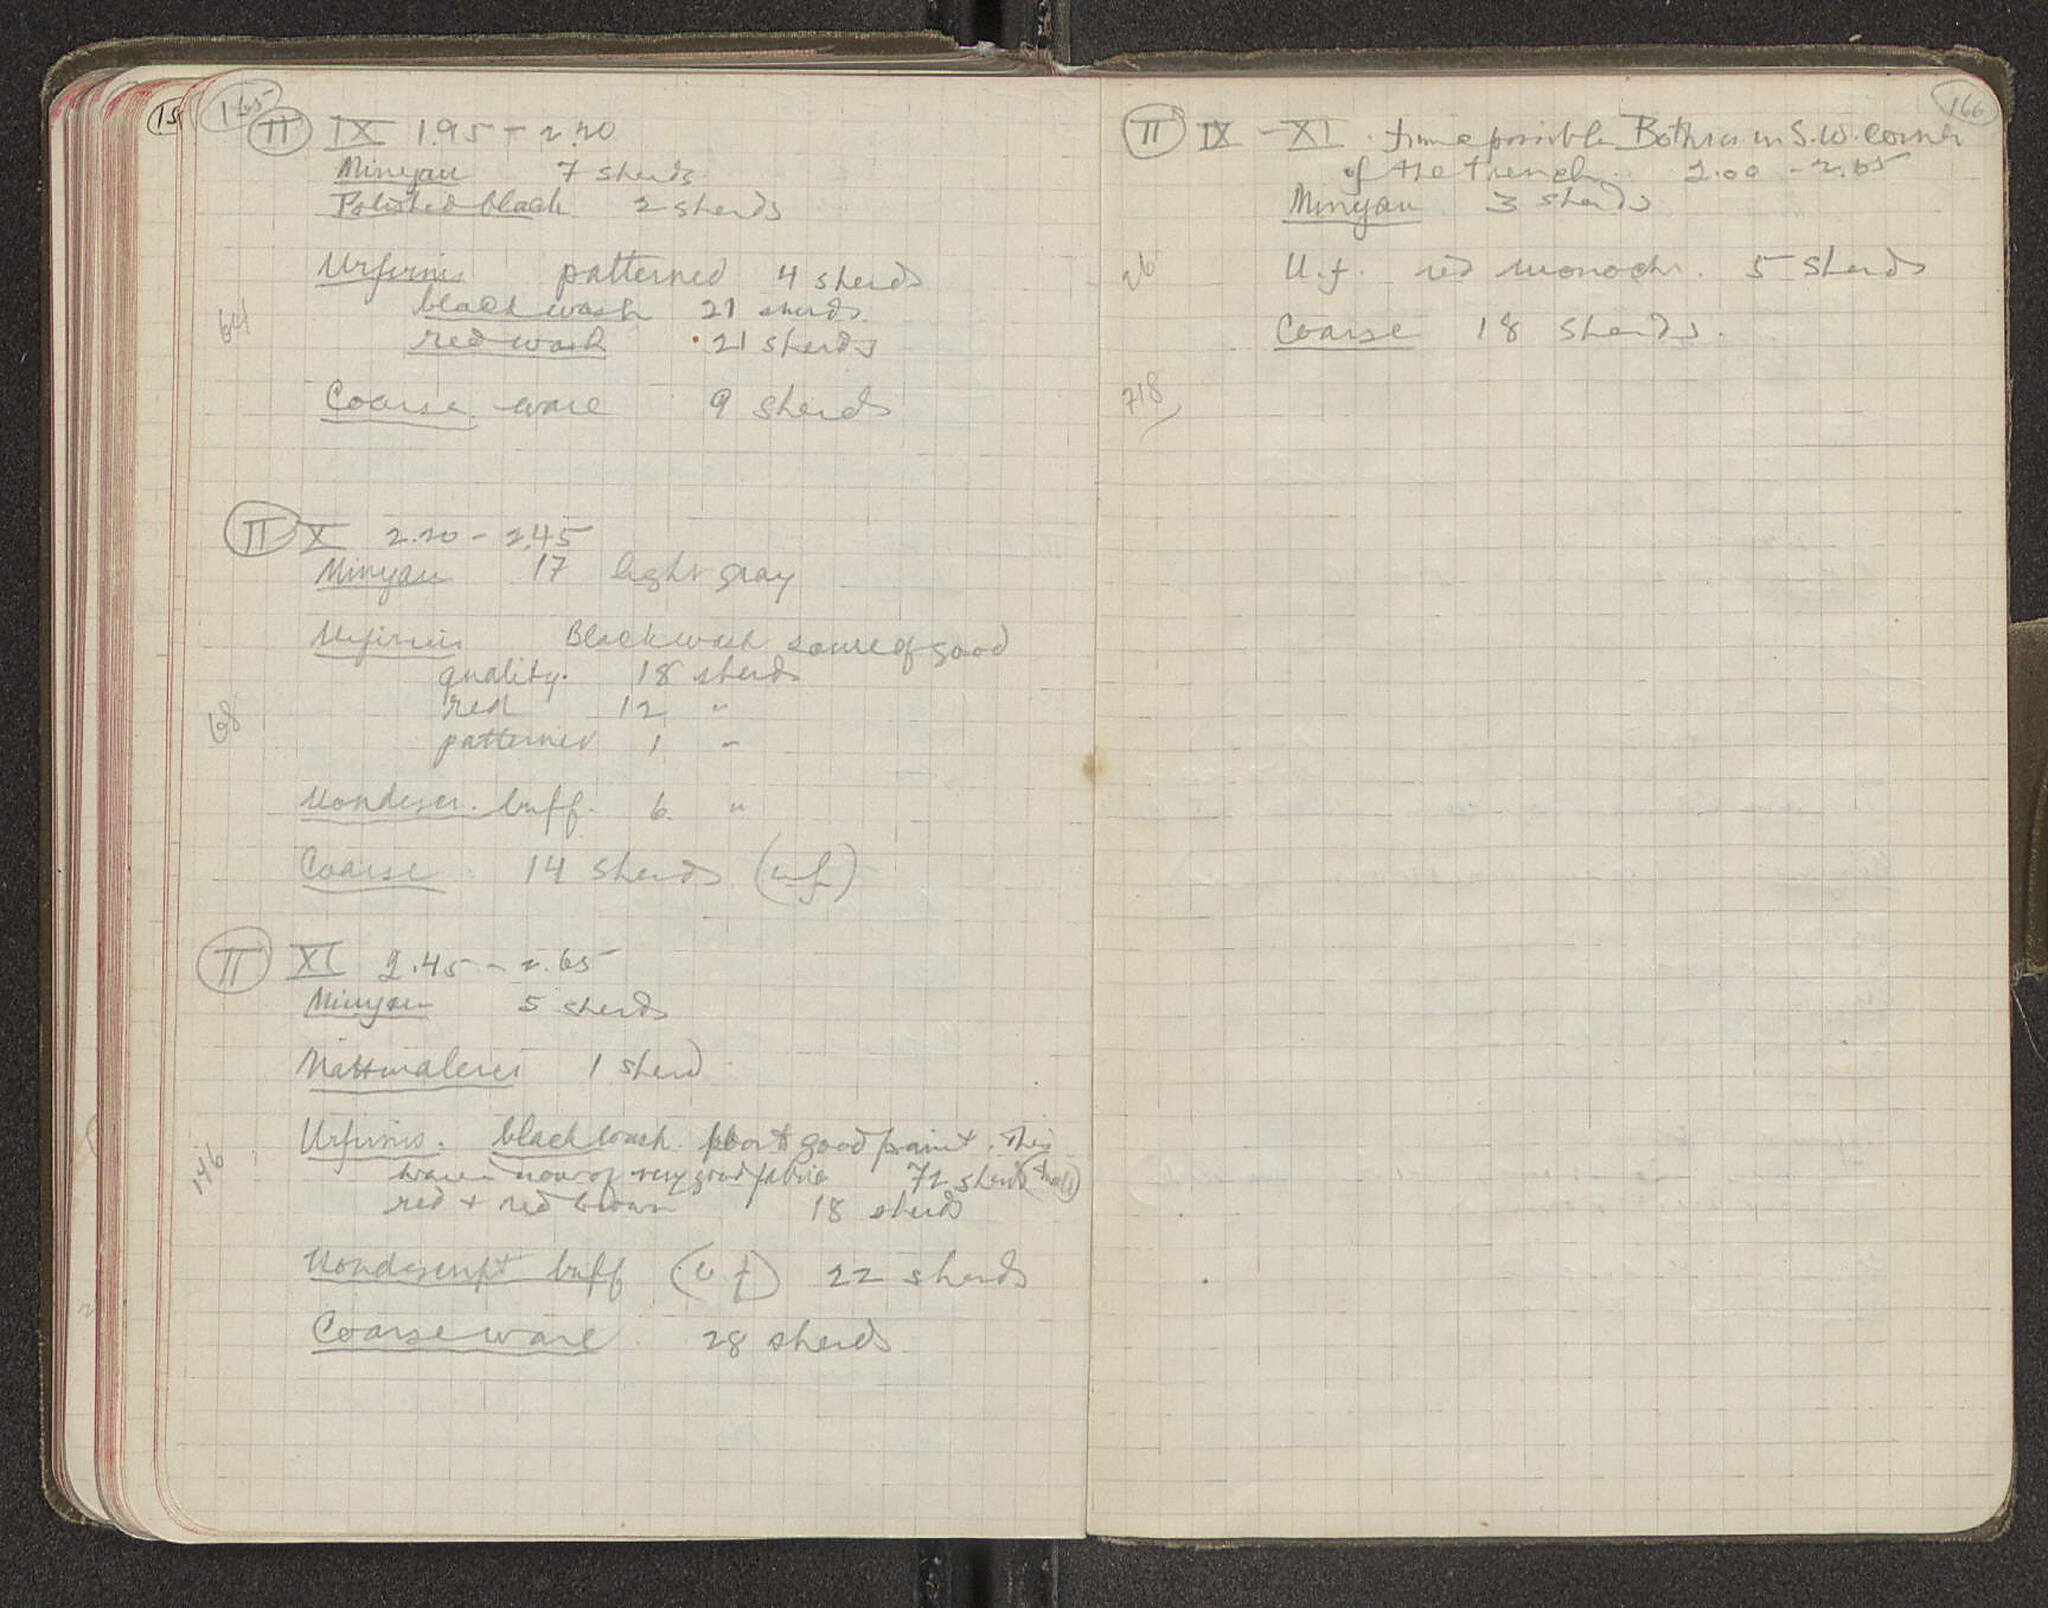 15
165
II IX 1.95 - 2.20
Minyan 7 sherds
Polished black 2 sherds
Urfirnis patterned 4 sherds
black wash 21 sherds
64
red wash 21 sherds
Coarse ware 9 sherds
II X 2.20 - 2.45
Minyan 17 light gray
Urfirnis Black wash some of good
quality. 18 sherds
red 12 "
68
patterned 1 "
Nondescr. buff. 6 "
Coarse 14 sherds (uf)
II XI 2.45 - 2.65
Minyan 5 sherds
Mattmalerei 1 sherd
Urfirnis. black wash good paint. This
146
ware now of very good fabric 72 sherds
red + red brown 18 sherds
Nondescript buff (uf) 22 sherds
Coarse ware 28 sherds
166
II IX - XI. from possible Bothros in S.W. corner
of the trench. 2.00 - 2.65
Minyan 3 sherds
26
U.f. red monochr. 5 sherds
Coarse 18 sherds.
718